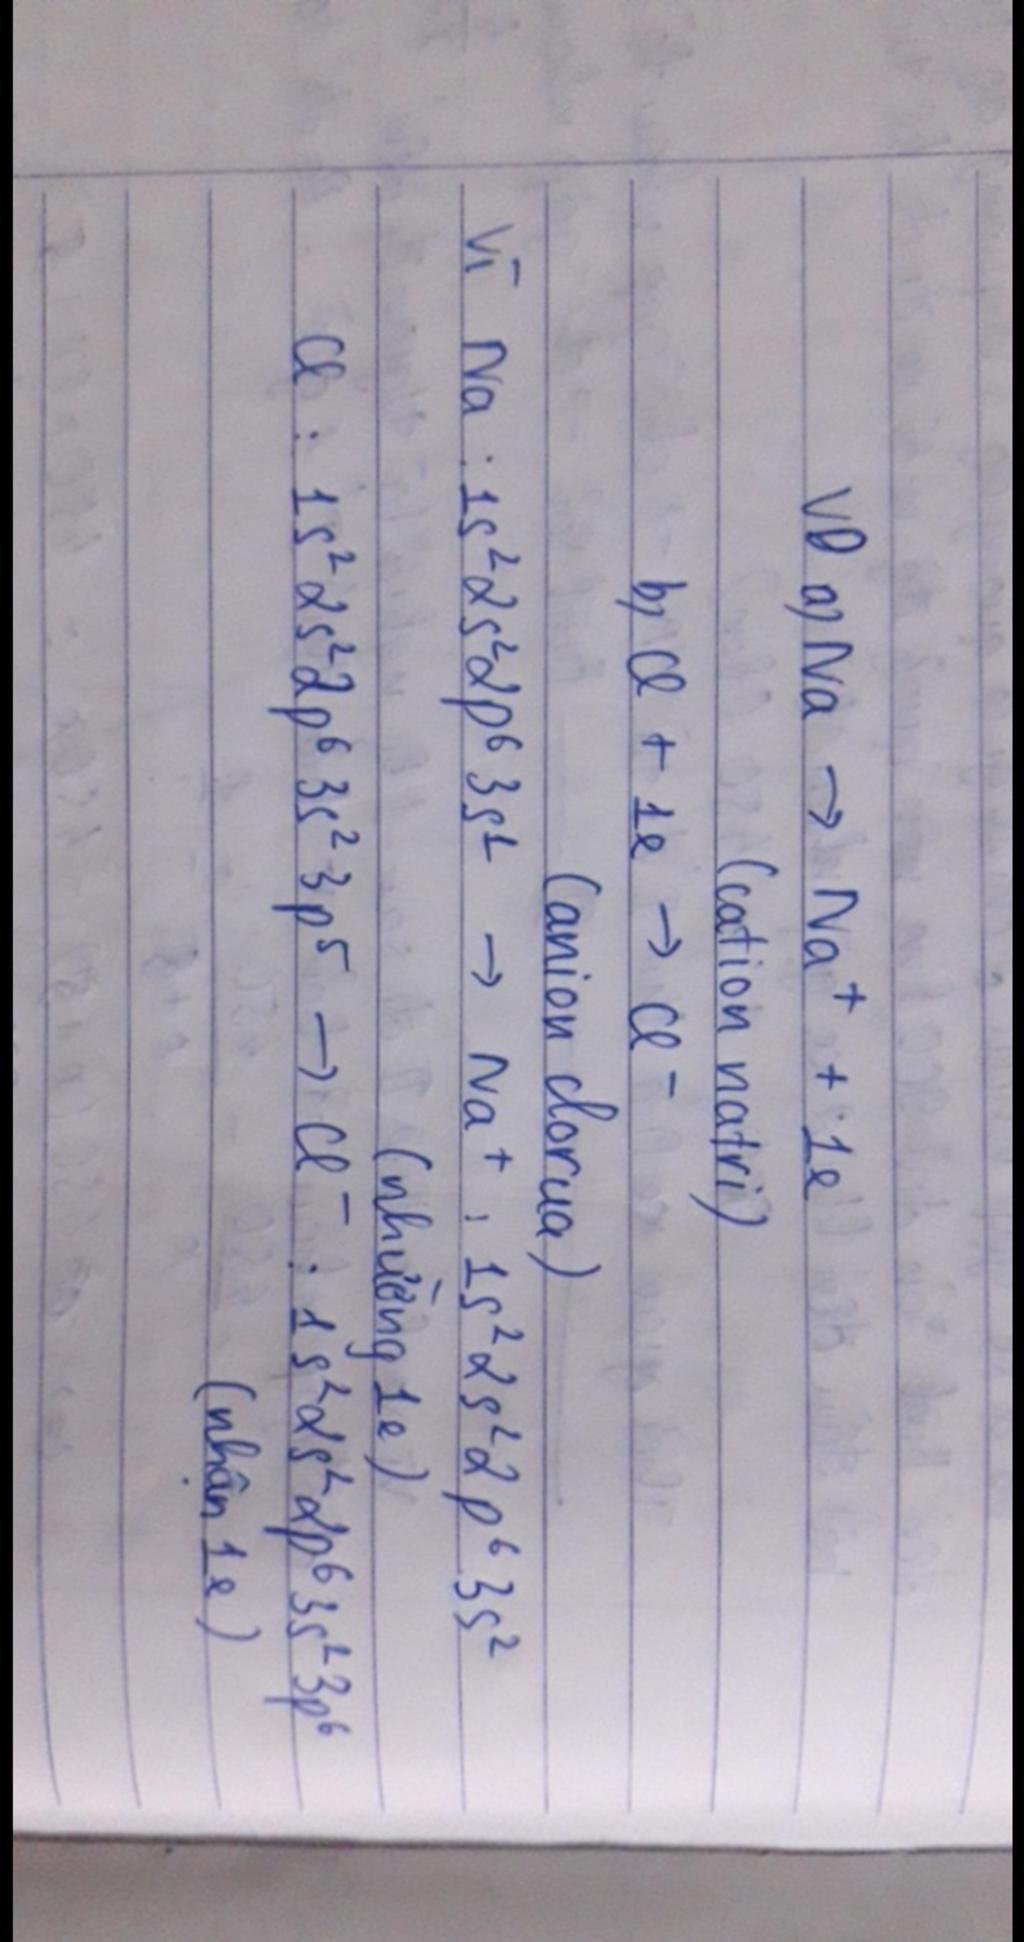 VD a) Na → Na⁺ + 1e
(cation natri)
b) Cl + 1e → Cl⁻
(anion clorua)
Vì Na : 1s²2s²2p⁶3s¹ → Na⁺ : 1s²2s²2p⁶3s²
(nhường 1e)
Cl : 1s²2s²2p⁶3s²3p⁵ → Cl⁻ : 1s²2s²2p⁶3s²3p⁶
(nhận 1e)